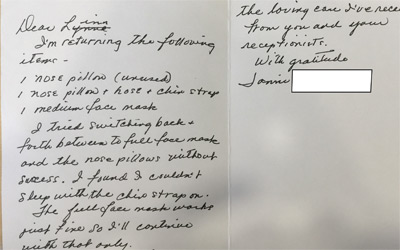 Dear Lynne
I'm returning the following
items -
1 nose pillow (unused)
1 nose pillow + hose + chin strap
1 medium face mask
I tried switching back &
forth between to full face mask
and the nose pillows without
success. I found I couldn't
sleep with the chin strap on.
The full face mask works
just fine so I'll continue
with that only.
the loving care I've rece
from you and your
receptionists.
With gratitude